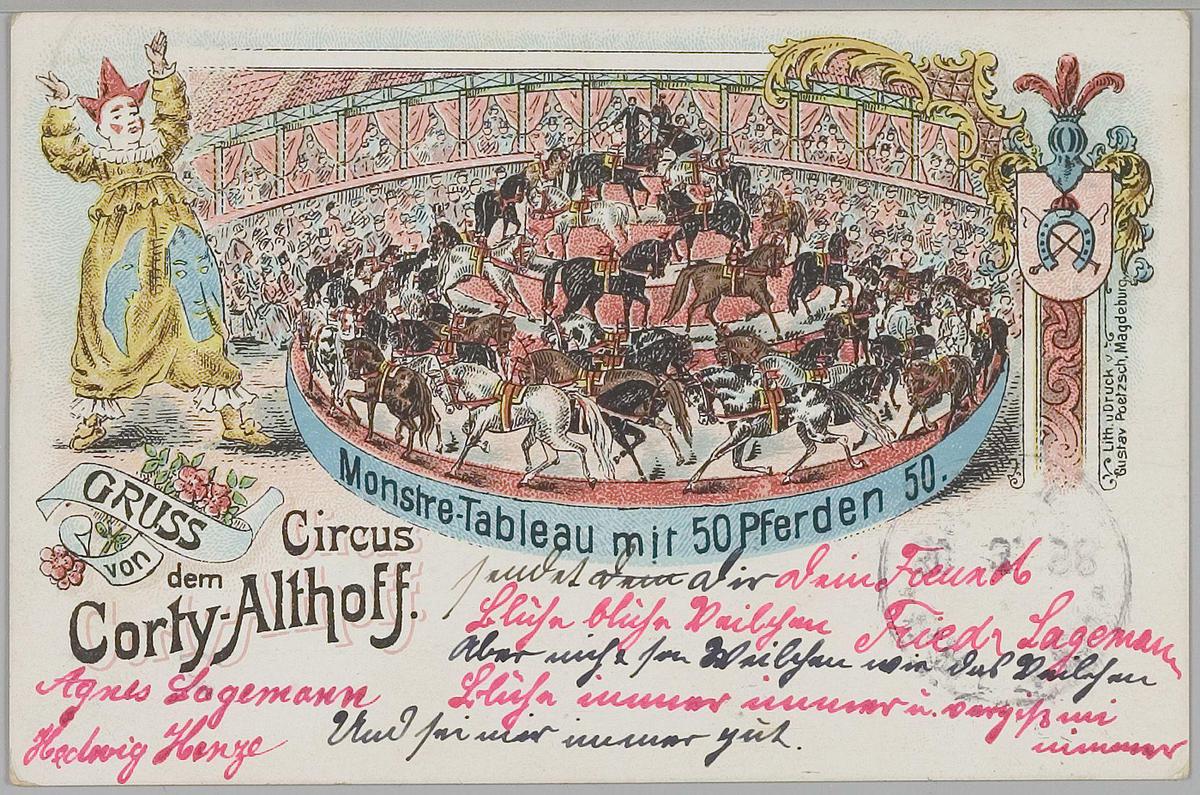 Lith. u. Druck v.
Gustav Poetzsch, Magdeburg.
Monstre-Tableau mit 50 Pferden 50.
GRUSS
von
dem
Circus
Corty-Althoff.
sendet dem Dir dein Freund
Friedr Lagemann
Blühe blühe Veilchen
Aber nicht so Weilchen wie das Veilchen
Blühe immer immer u. vergiß mi
nimmer
Und sei mir immer gut.
Agnes Lagemann
Hedwig Henze
98